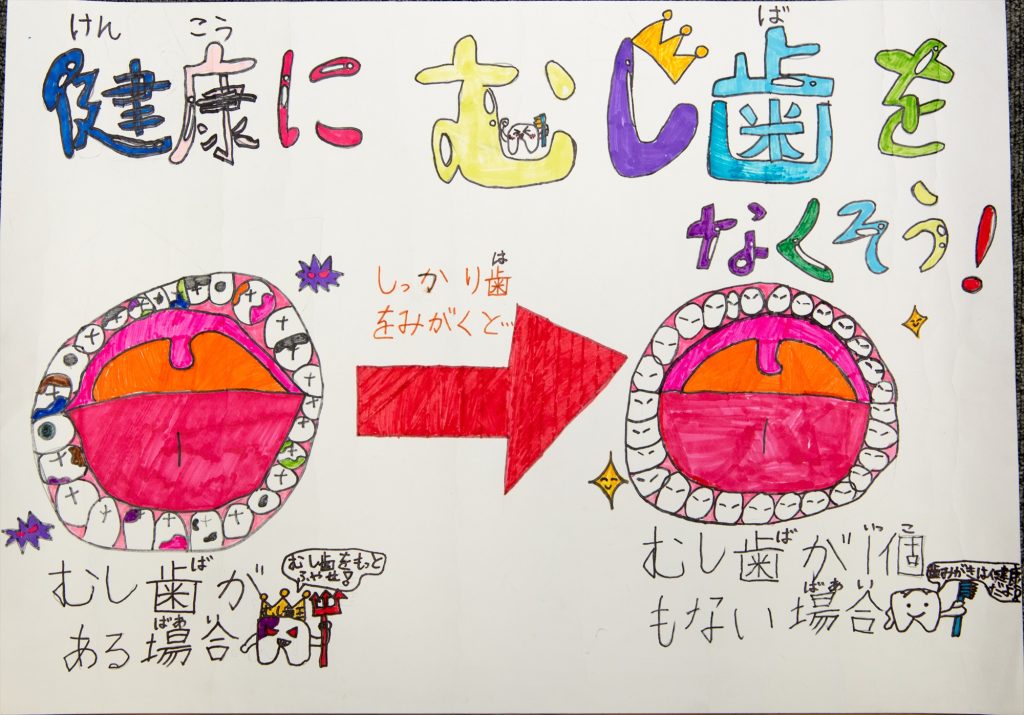 けん こう
健康に
ば
むし歯を
なくそう！
は
しっかり歯
をみがくと…
ば
むし歯が
ばあい
ある場合
むし歯をもっと
ふやせ！
ば いっ こ
むし歯が1個
ばあい
もない場合
歯みがきは健康
だよ